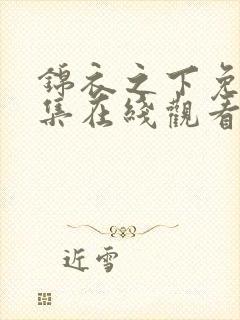 錦衣之下免
集在綫觀看
近雪